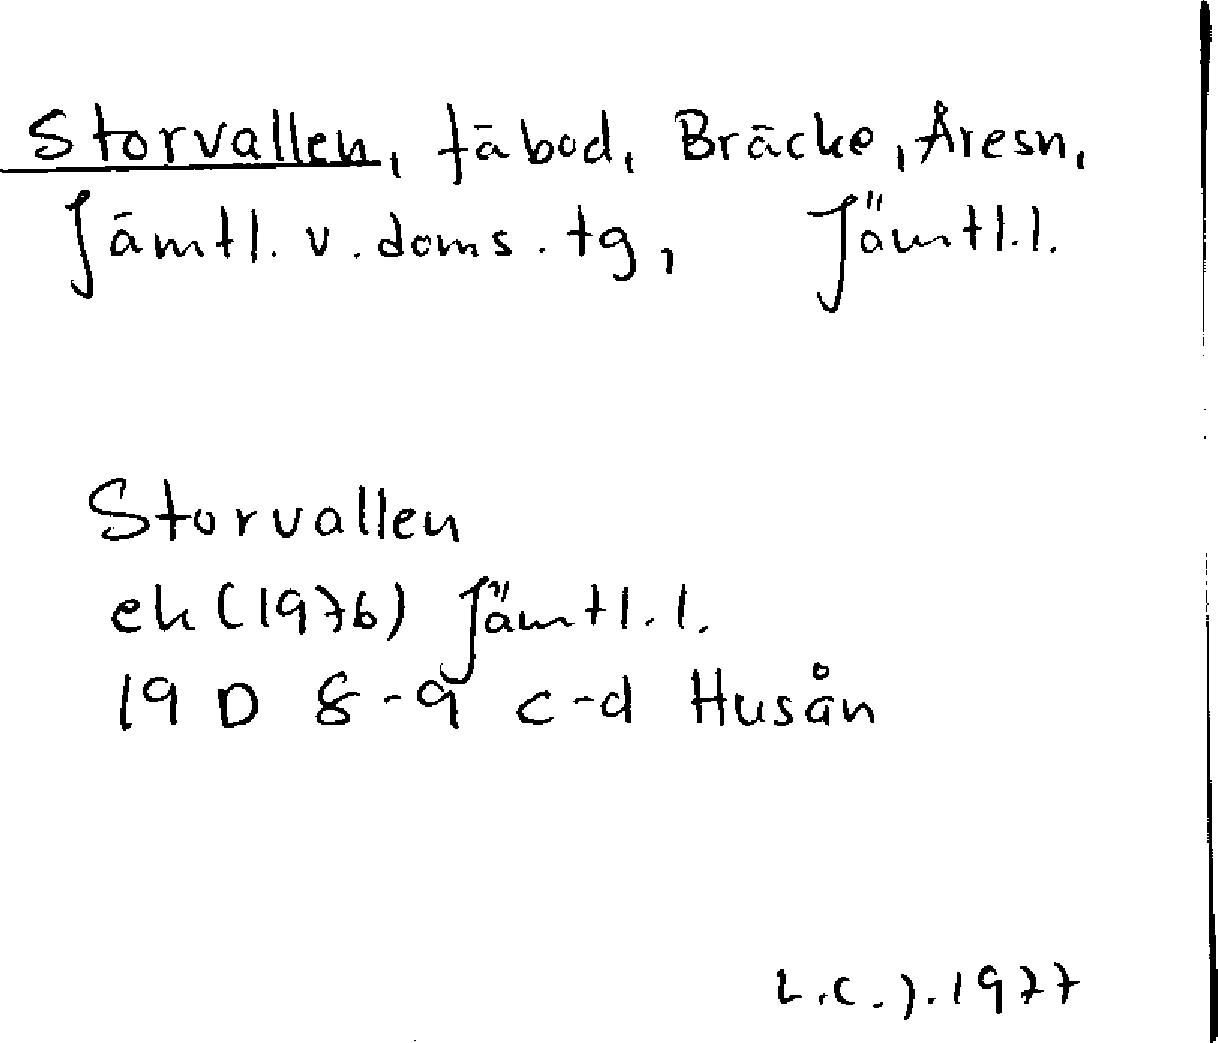 Storvallen, fäbod, Bräcke, Åresn,
Jämtl. v. doms. tg, Jämtl. l.
Storvallen
ek (1976) Jämtl. l.
19 D 8-9 c-d Husån
L.C.J. 1977